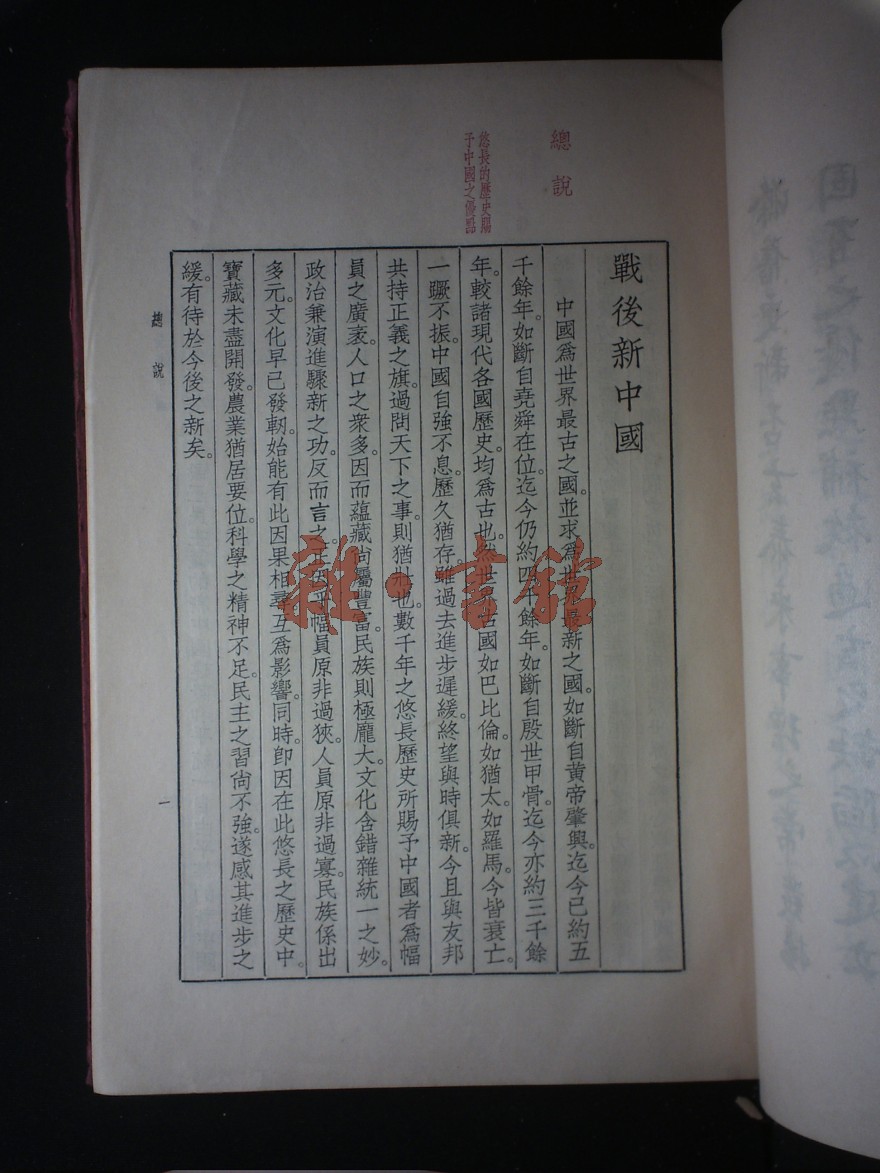 總說
悠長的歷史賜
予中國之優點
戰後新中國
中國爲世界最古之國。並求爲世界最新之國。如斷自黃帝肇興。迄今已約五
千餘年。如斷自堯舜在位。迄今仍約四千餘年。如斷自殷世甲骨。迄今亦約三千餘
年。較諸現代各國歷史。均爲古也。然世界古國如巴比倫。如猶太。如羅馬。今皆衰亡。
一蹶不振。中國自強不息。歷久猶存。雖過去進步遲緩。終望與時俱新。今且與友邦
共持正義之旗。過問天下之事。則猶壯也。數千年之悠長歷史所賜予中國者爲幅
員之廣袤。人口之衆多。因而蘊藏尙屬豐富。民族則極龐大。文化含錯雜統一之妙。
政治兼演進驟新之功。反而言之。正因乎幅員原非過狹。人員原非過寡。民族係出
多元。文化早已發軔。始能有此因果相尋。互爲影響。同時。卽因在此悠長之歷史中。
寶藏未盡開發。農業猶居要位。科學之精神不足。民主之習尙不強。遂感其進步之
緩。有待於今後之新矣。
總說
一
雜·書館